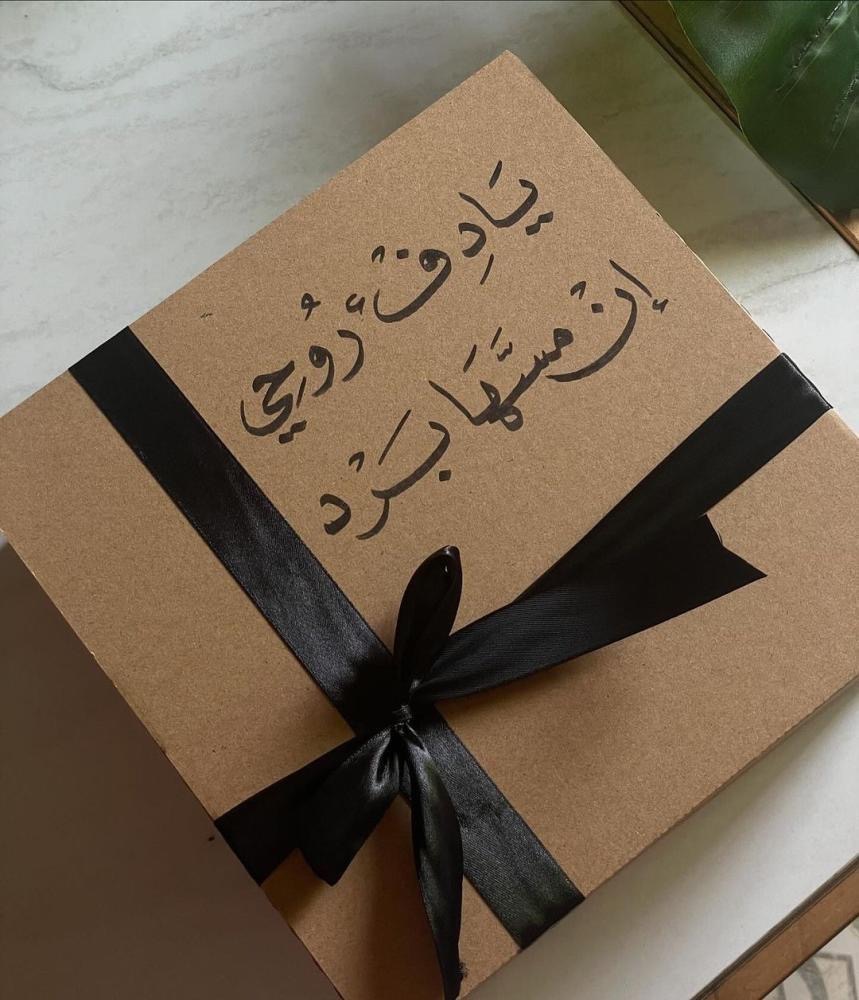 يَا دِفْء رُوحِي
إنْ مسَّهَا بَرْد